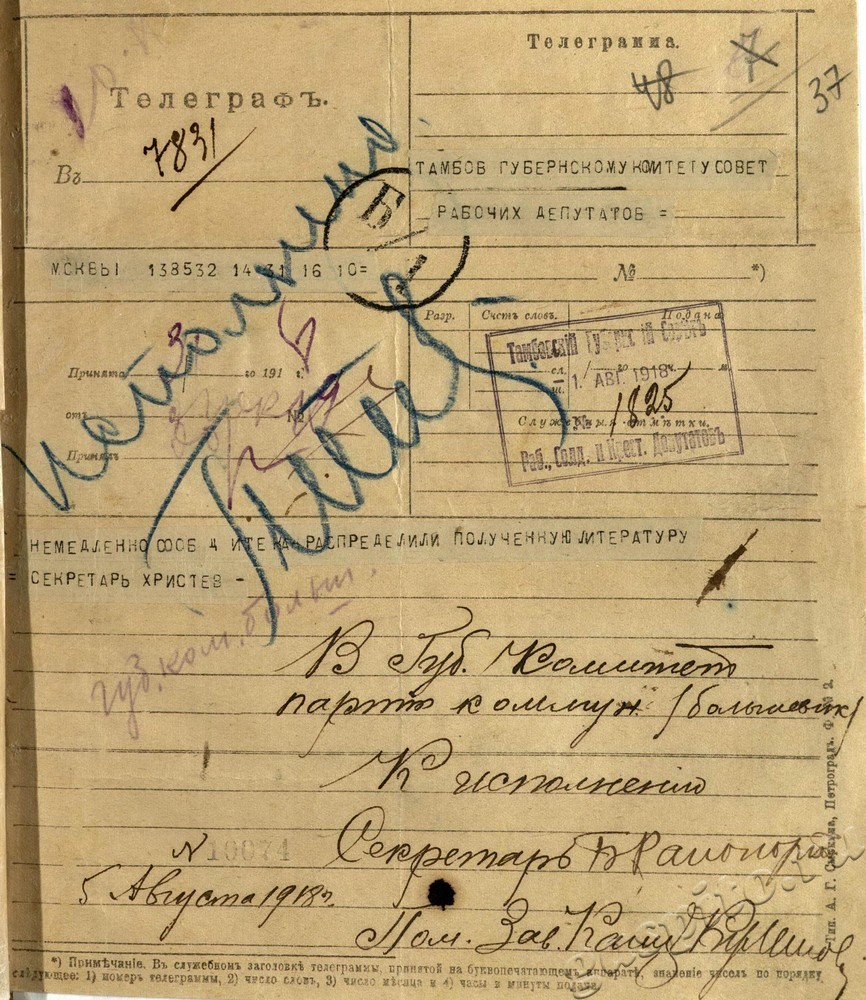 Телеграмма.
48
7
37
Телеграфъ.
Въ 7831
ТАМБОВ ГУБЕРНСКОМУ КОМИТЕТУ СОВЕТ
РАБОЧИХ ДЕПУТАТОВ =
Б
МСКВЫ 138532 14 31 16 10=
№ *)
Разр.
Счетъ словъ.
Подана
Принята
го 191 г.
сл.
1. АВГ. 1918
1825
отъ
№
Принялъ
Раб., Солд. и Крест. Депутатовъ
НЕМЕДЛЕННО РАСПРЕДЕЛИЛИ ПОЛУЧЕННУЮ ЛИТЕРАТУРУ
= СЕКРЕТАРЬ ХРИСТЕВ -
губ. ком. больш.
В Губ. Комитет
партт коммун. (большевик)
К исполнению
N 10074
Секретарь
5 Августа 1918 г.
Пом. Зав. Канц
Тип. А. Г. Петроградъ. 2.
*) Примѣчаніе. Въ служебномъ заголовкѣ телеграммы, принятой на буквопечатающемъ аппаратѣ, значеніе чиселъ по порядку
слѣдующее: 1) номеръ телеграммы, 2) число словъ, 3) число мѣсяца и 4) часы и минуты подачи.